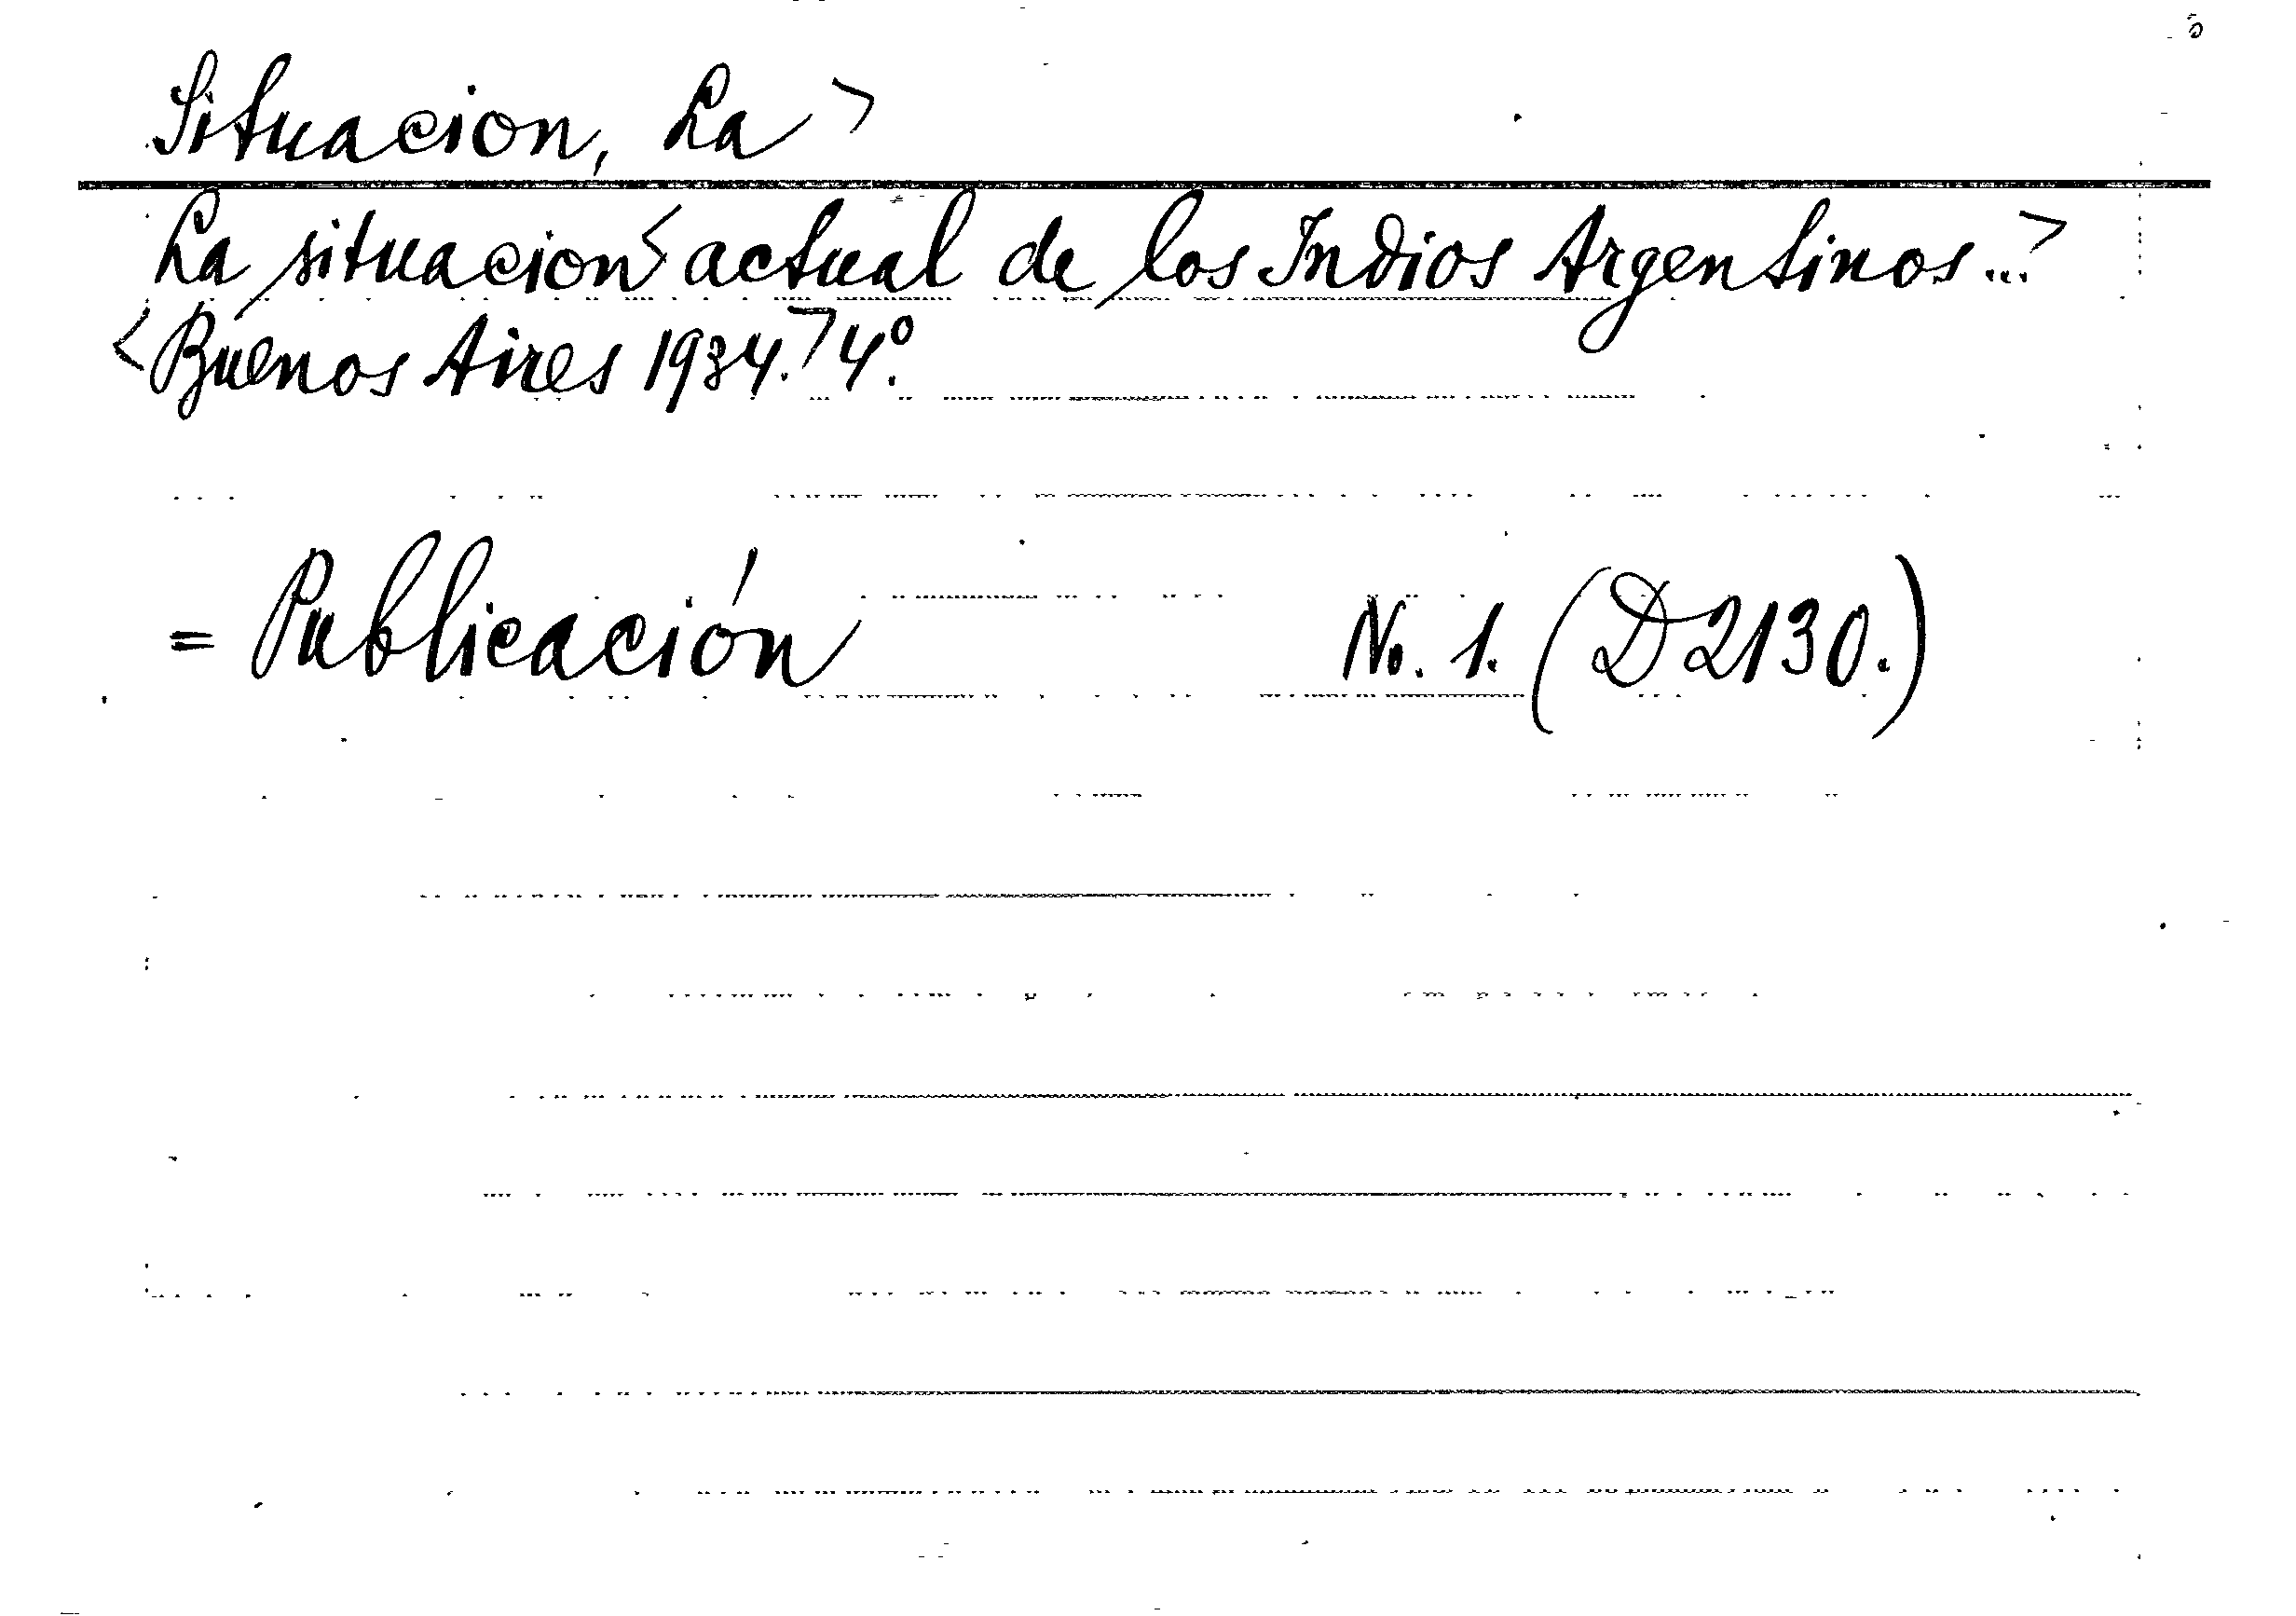 Situacion, La >
La situacion < actual de los Indios Argentinos...>
<Buenos Aires 1934.> 4º.
= Publicación No. 1. (D2130.)